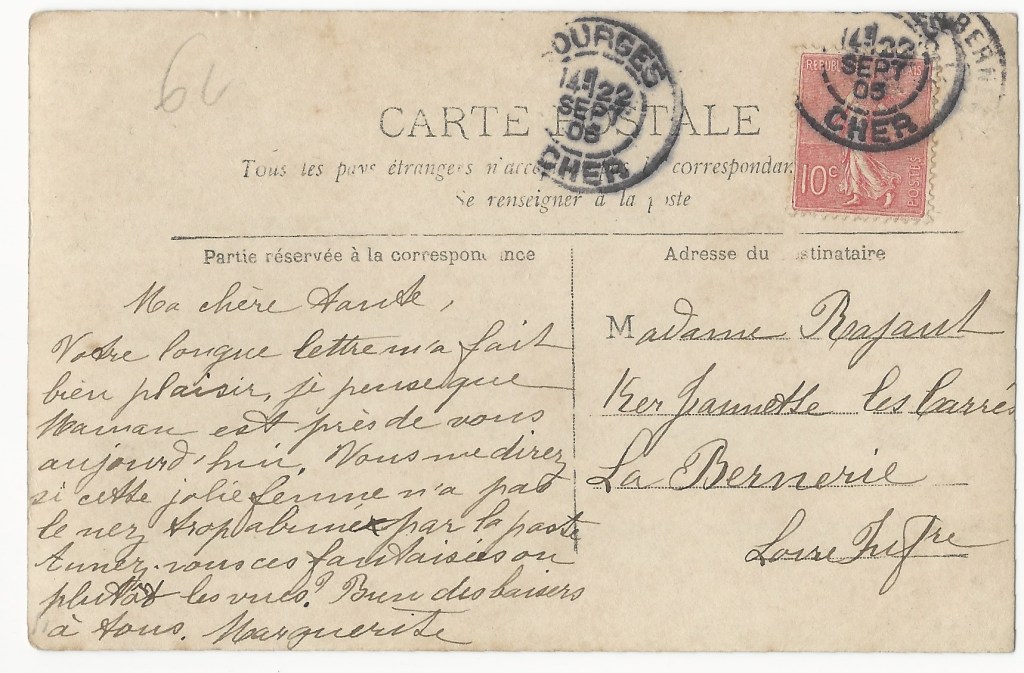 6
BOURGES
14 22
SEPT
05
CHER
14 22
SEPT
05
CHER
BERN
REPUBL AIS
10c
POSTES
CARTE POSTALE
Tous les pays étrangers n'acc correspondan
Se renseigner à la poste
Partie réservée à la correspondance
Adresse du stinataire
Ma chère tante,
Votre longue lettre m'a fait
bien plaisir, je pense que
Maman est près de vous
aujourd'hui. Vous me direz
si cette jolie femme n'a pas
le nez trop abimé par la poste
Aimez-vous ces fantaisies ou
plutôt les vues? Bien des baisers
à tous. Marguerite
Madame Rajaut
Ker Jannette les Carrés
La Bernerie
Loire Infre